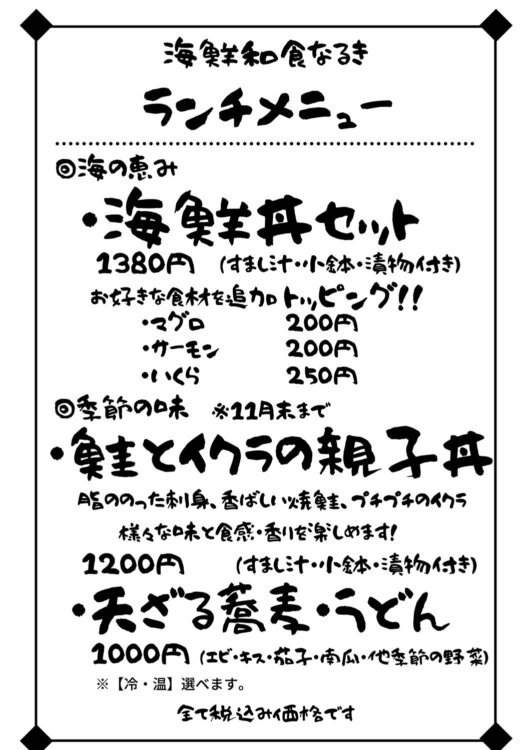 海鮮和食なるき
ランチメニュー
◎海の恵み
・海鮮丼セット
1380円 (すまし汁・小鉢・漬物付き)
お好きな食材を追加トッピング!!
・マグロ 200円
・サーモン 200円
・いくら 250円
◎季節の味 ※11月末まで
・鮭とイクラの親子丼
脂ののった刺身、香ばしい焼鮭、プチプチのイクラ
様々な味と食感・香りを楽しめます!
1200円 (すまし汁・小鉢・漬物付き)
・天ざる蕎麦・うどん
1000円 (エビ・キス・茄子・南瓜・他季節の野菜)
※【冷・温】選べます。
全て税込み価格です